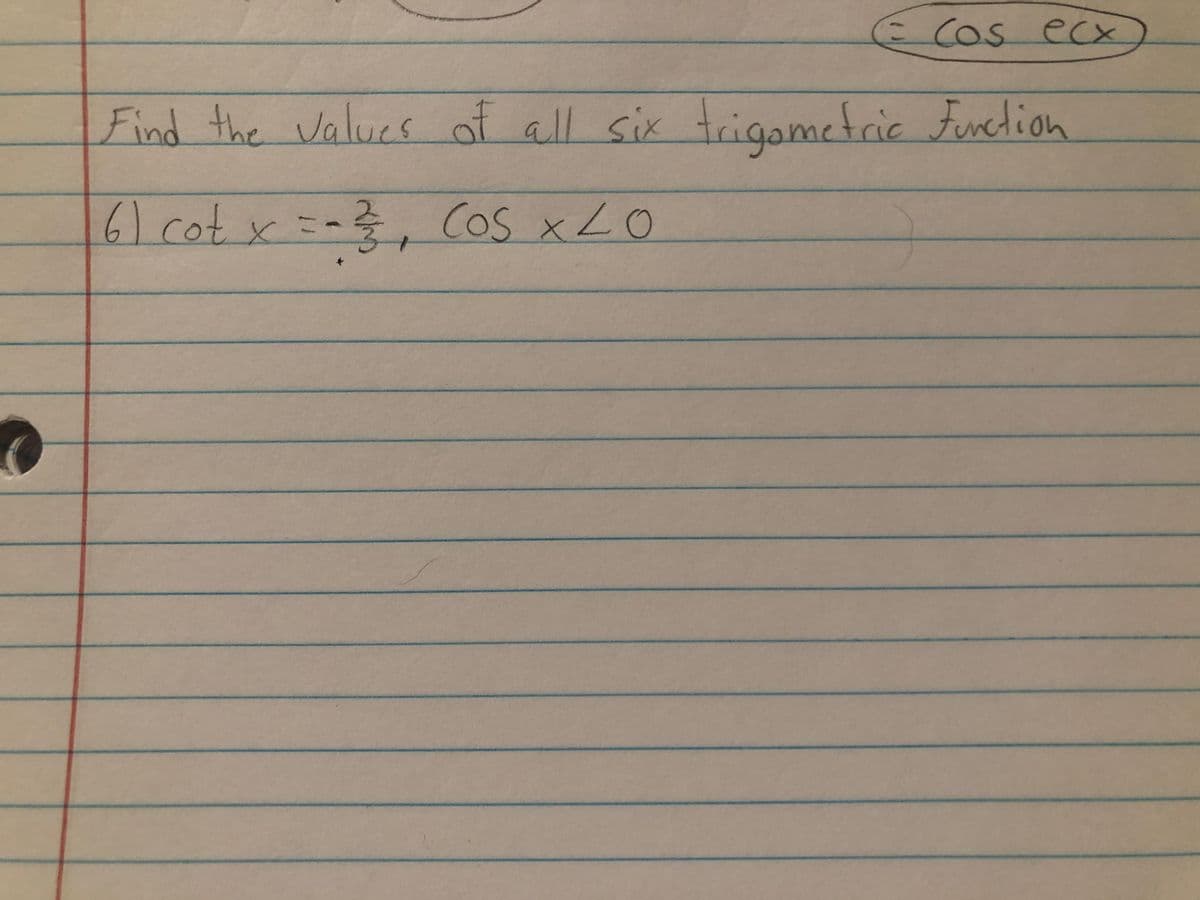 = cos ecx
Find the values of all six trigometric Function
6) cot x = -2/3, Cos x < 0